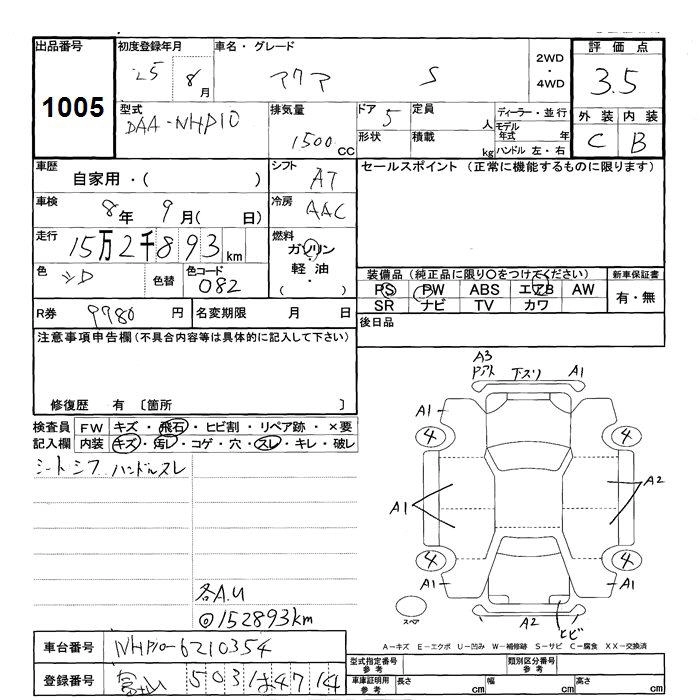 出品番号 初度登録年月 車名・グレード 2WD・4WD 評価点
1005 25 8月 アクア S 3.5
型式 排気量 ドア 5 定員 人 ディーラー・並行 外装 内装
DAA-NHP10 1500cc 形状 積載 kg モデル年式 年 C B
ハンドル 左・右
車歴 自家用・( ) シフト AT セールスポイント (正常に機能するものに限ります)
車検 8年 9月( 日) 冷房 AAC
走行 15万2千893km 燃料 ガソリン
軽油
( ・ )
色 色替 色コード 082 装備品 (純正品に限り○をつけてください) 新車保証書
PS PW ABS エアB AW 有・無
SR ナビ TV カワ
R券 9780円 名変期限 月 日 後日品
注意事項申告欄 (不具合内容等は具体的に記入して下さい)
修復歴 有 〔箇所 〕
検査員 FW キズ・飛石・ヒビ割・リペア跡・×要
記入欄 内装 キズ・汚レ・コゲ・穴・スレ・キレ・破レ
シートシワ ハンドルスレ
A3 下スリ A1
A1
4 4
A1 A2
4 4
A1 A1
A2 ヒビ
スペア
各A.U
◎152893km
A-キズ E-エクボ U-凹み W-補修跡 S-サビ C-腐食 XX-交換済
車台番号 NHP10-6210354
型式指定番号 参考 類別区分番号 参考
登録番号 富士山 503は4714
車庫証明用 参考 長さ cm 幅 cm 高さ cm